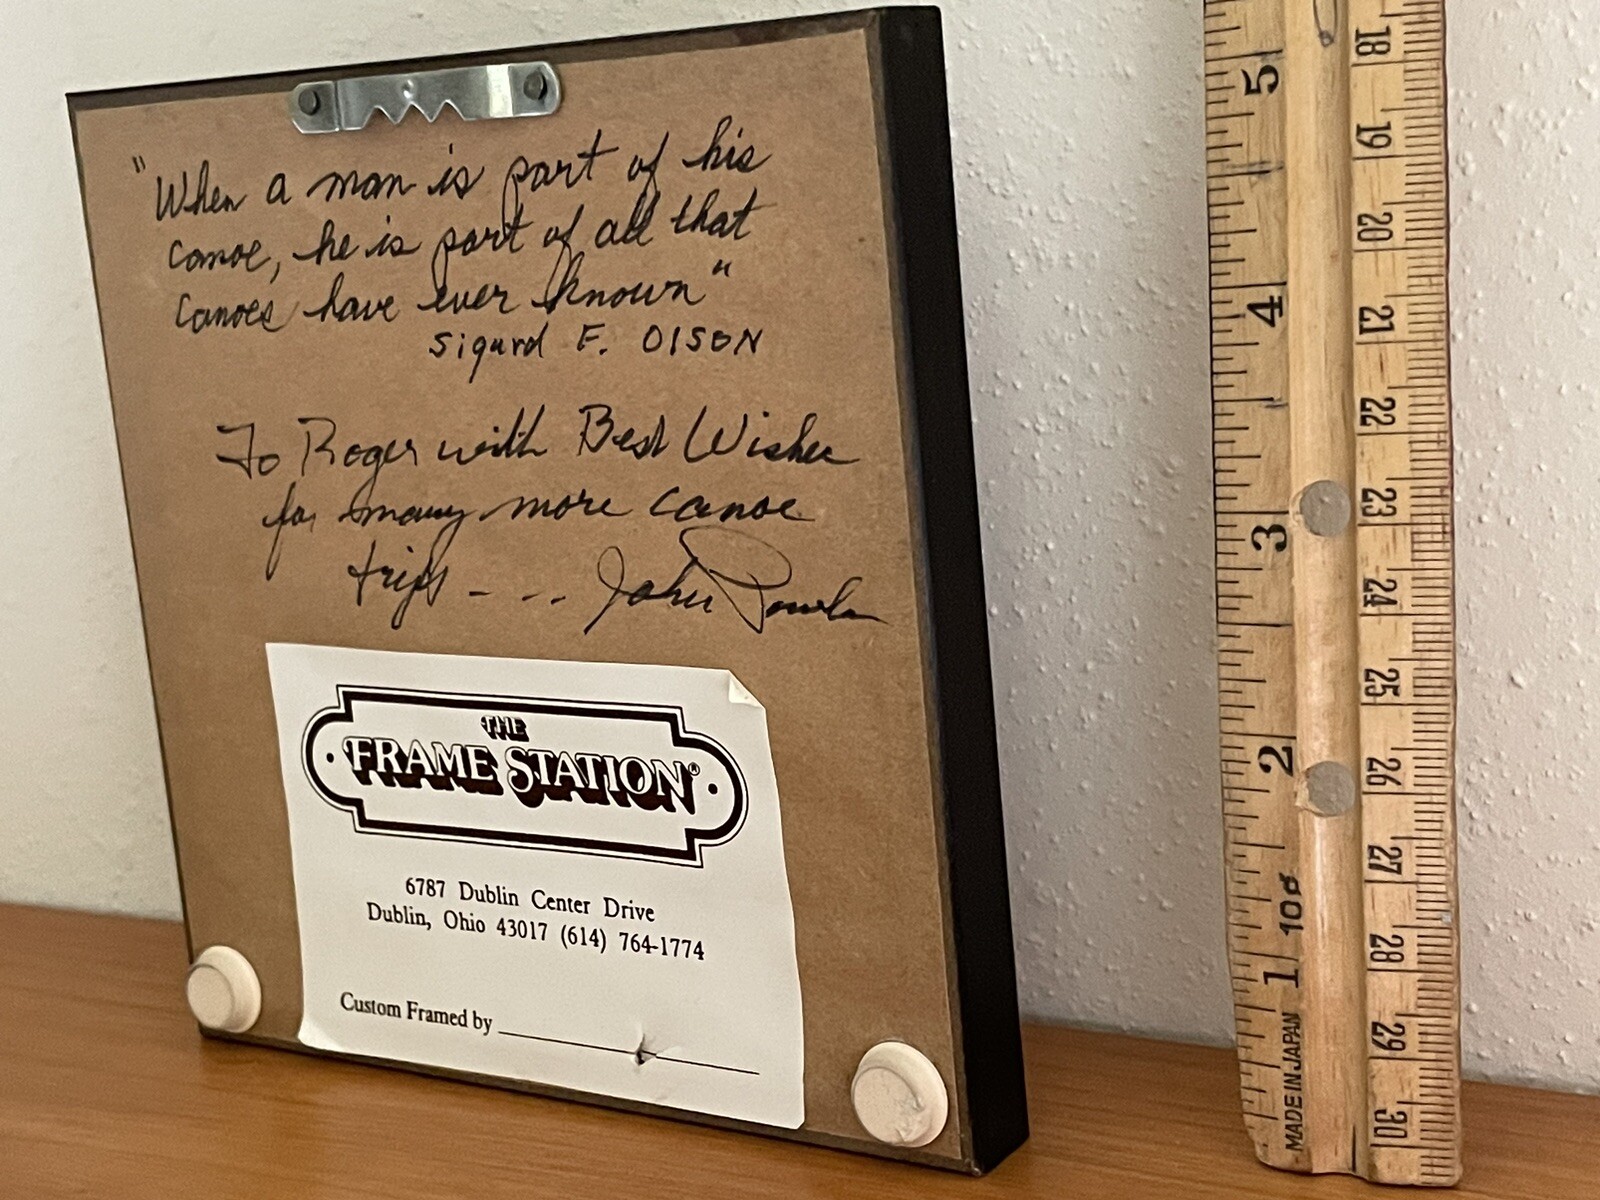 "When a man is part of his
canoe, he is part of all that
canoes have ever known"
Sigurd F. OlSON
To Roger with Best Wishes
for many more canoe
trips - - - John
THE
FRAME STATION®
6787 Dublin Center Drive
Dublin, Ohio 43017 (614) 764-1774
Custom Framed by
5
4
3
2
1
10¢
MADE IN JAPAN
18
19
20
21
22
23
24
25
26
27
28
29
30